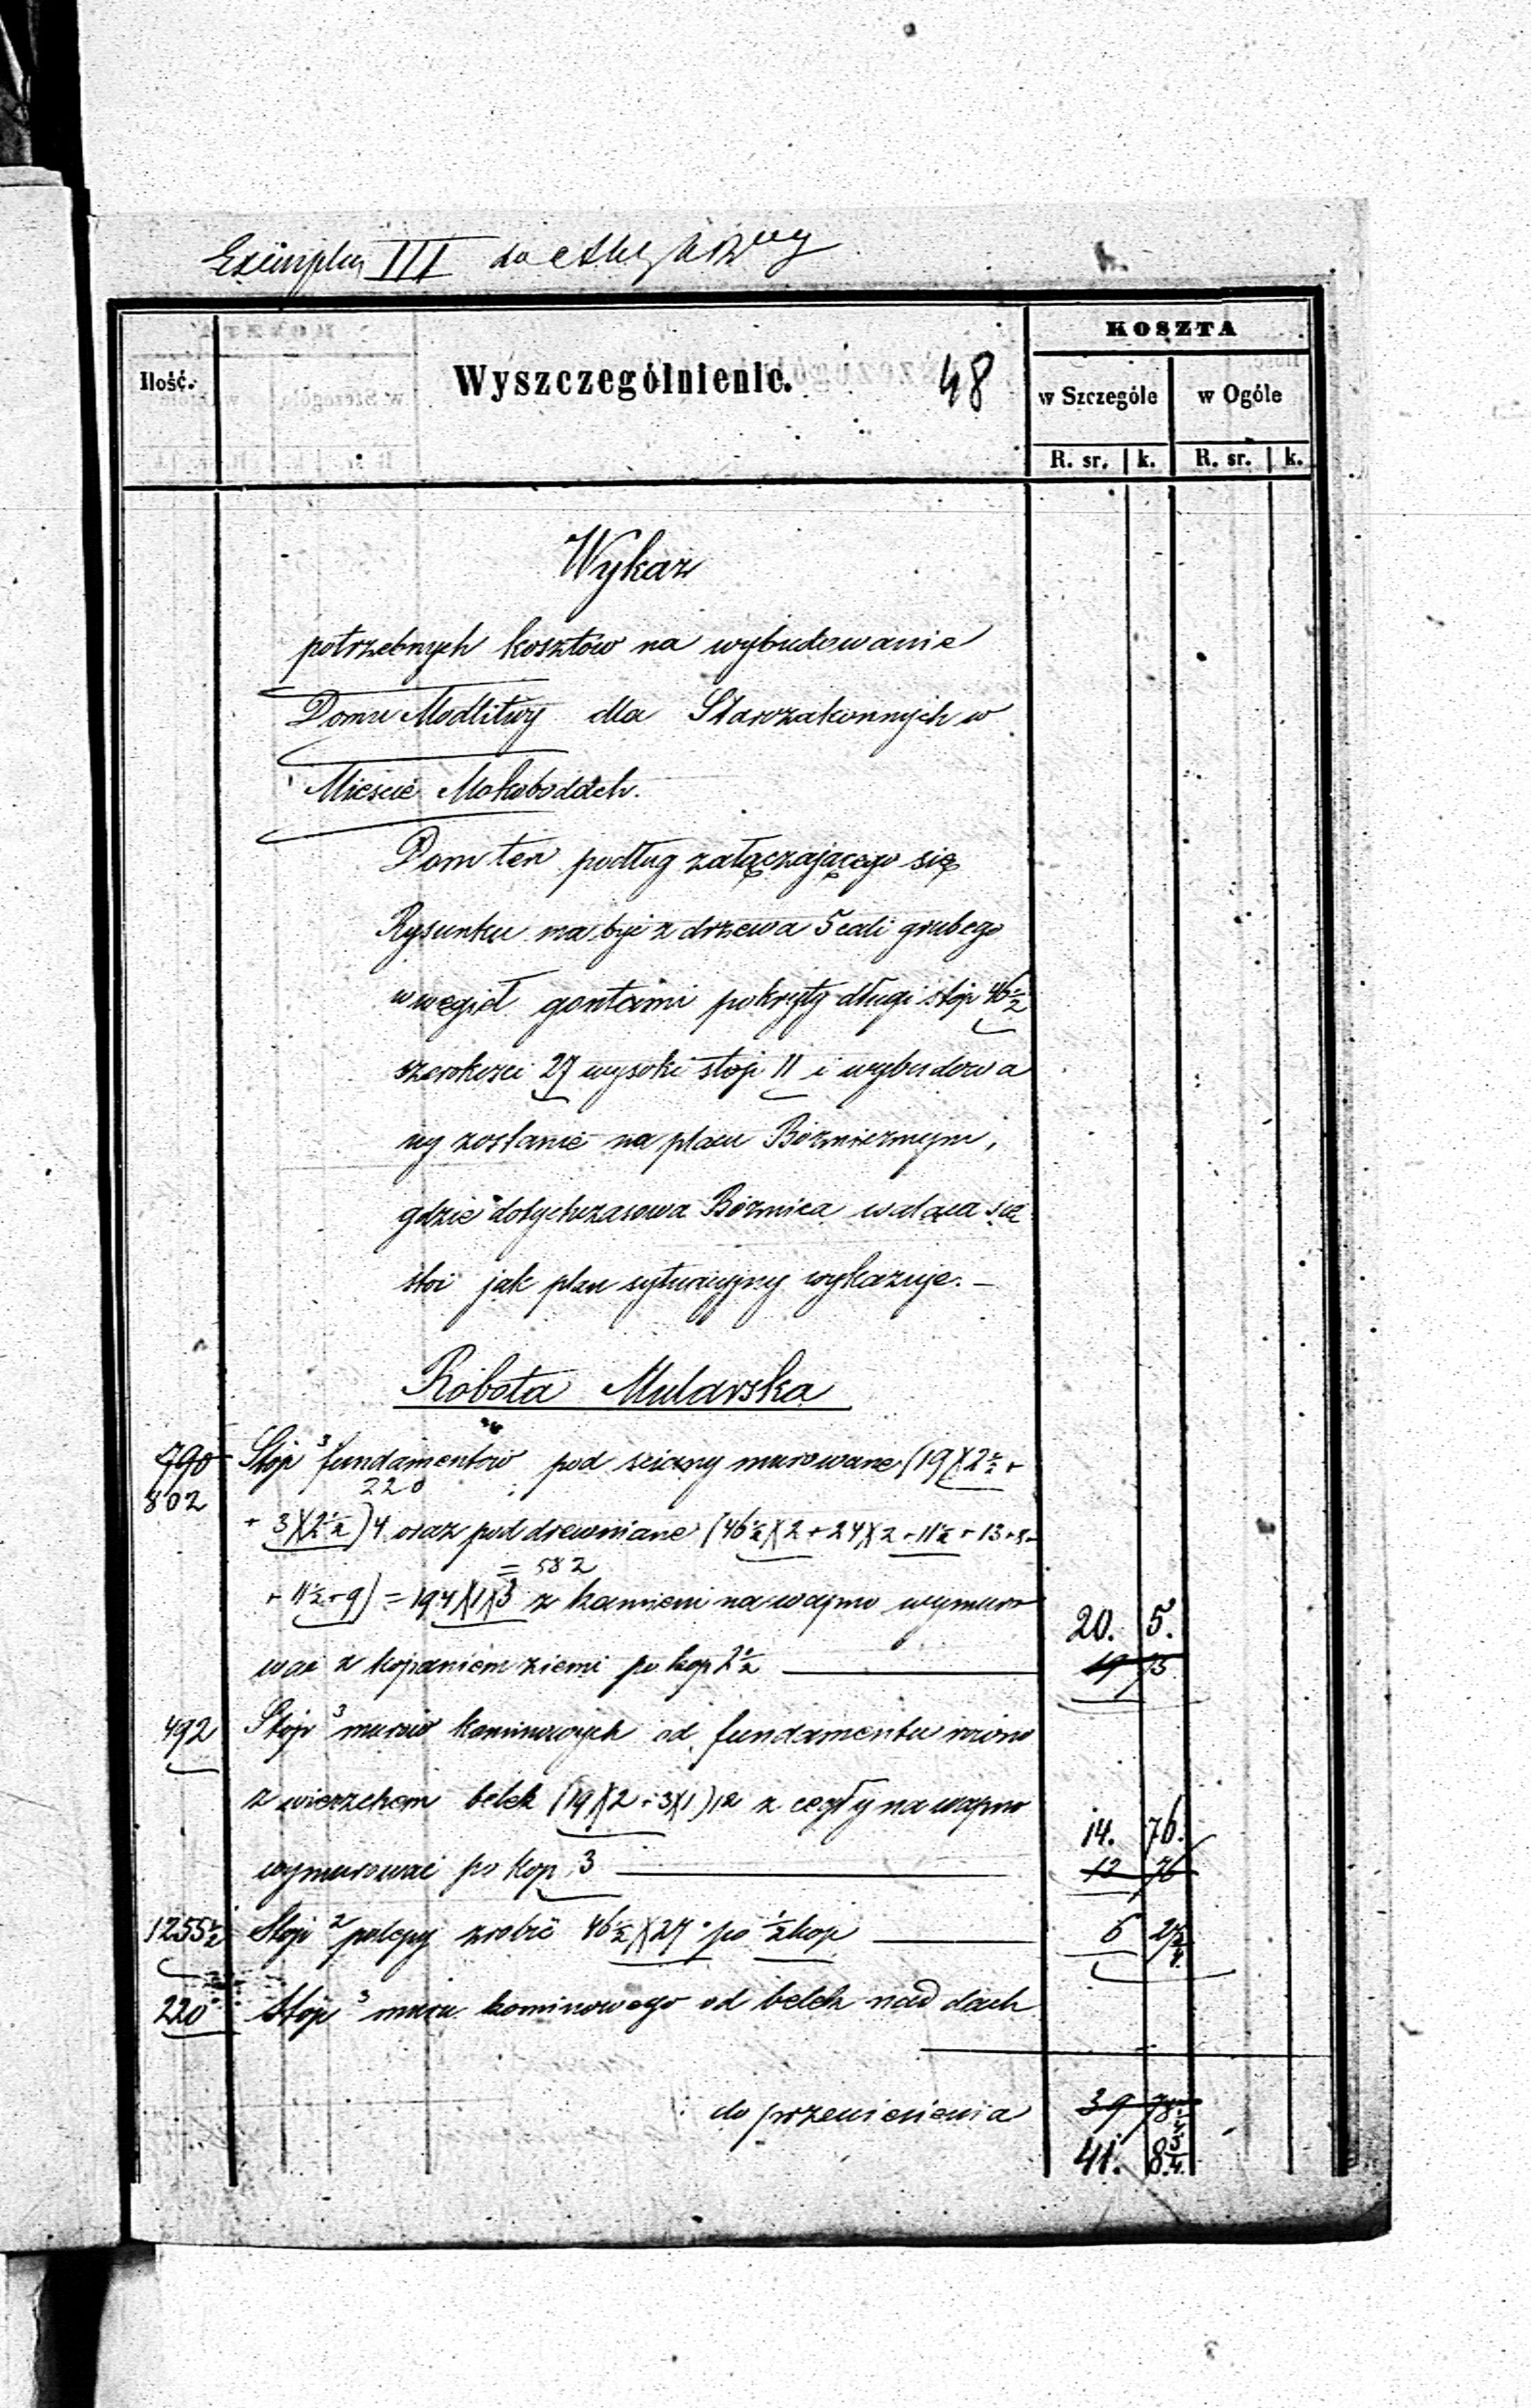 Exemplarz III do
KOSZTA
Ilość.
Wyszczególnienie.
48
w Szczególe
w Ogóle
R. sr. k. R. sr. k.
Wykaz
potrzebnych kosztów na wybudowanie
Domu Modlitwy dla Starozakonnych w
Mieście Mokobodach.
Dom ten podług załączającego się
Rysunku ma być z drzewa 5 cali grubego
w węgieł gontami pokryty długi stóp 46 1/2
szerokości 27 wysoki stóp 11 i wybudowa
ny zostanie na placu Bóżnicznym,
gdzie dotychczasowa Bóżnica waląca się
stoi jak plan sytuacyjny wykazuje. –
Robota Mularska
790 Stóp 3 fundamentów pod ściany murowane (19)(2 1/2 +
802
220
+ 3)(2 1/2) 4 oraz pod drewniane (46 1/2)(2 + 24)(2 + 11 1/2 + 13 + 8 +
= 582
+ 11 1/2 + 9) = 194)(1)(3 z kamieni na wapno wymuro
20. 5.
wać z kopaniem ziemi po kop 2 1/2 19 75
492 Stóp 3 murów kominowych od fundamentu równo
z wierzchem belek (19)(2 + 3)(1) 12 z cegły na wapno
14. 76.
wymurować po kop 3 12 76
1255 1/2 Stóp 2 polepy zrobić 46 1/2)(27 po 1/2 kop 6 27 3/4
220 Stóp 3 muru kominowego od belek nad dach
do przeniesienia 39 78 3/4
41. 8 3/4